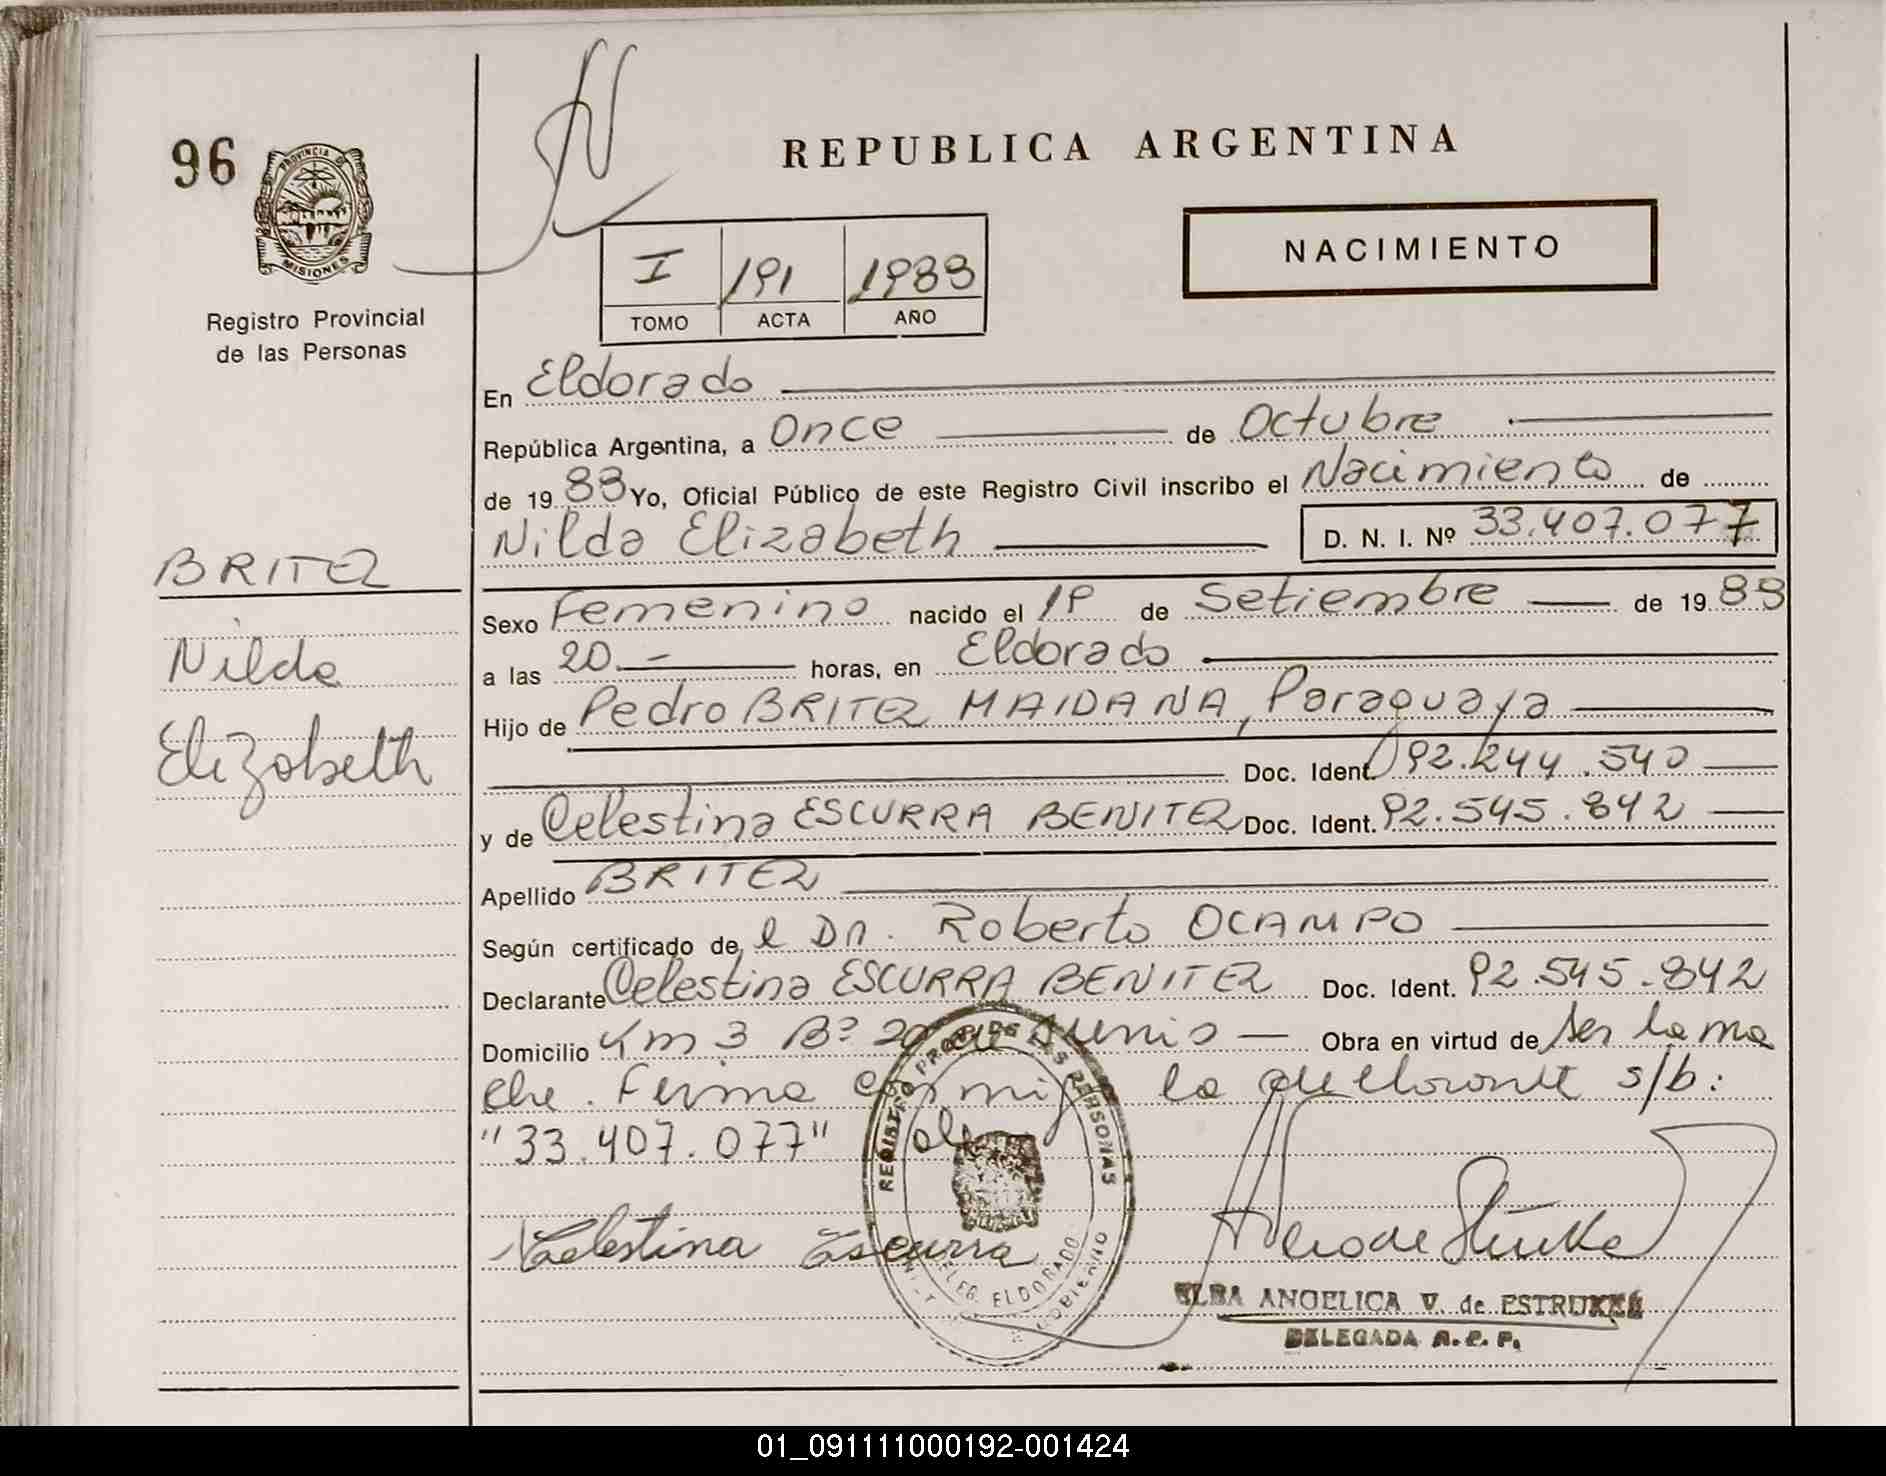 96
PROVINCIA DE
MISIONES
Registro Provincial
de las Personas
REPUBLICA ARGENTINA
NACIMIENTO
I 191 1988
TOMO ACTA AÑO
En Eldorado
República Argentina, a Once de Octubre
de 19 88 Yo, Oficial Público de este Registro Civil inscribo el Nacimiento de
Nilda Elizabeth D. N. I. Nº 33.407.077
BRITEZ
Nilda
Elizabeth
Sexo Femenino nacido el 19 de Setiembre de 19 88
a las 20.- horas, en Eldorado
Hijo de Pedro BRITEZ MAIDANA, Paraguaya
Doc. Ident. 92.244.540
y de Celestina ESCURRA BENITEZ Doc. Ident. 92.545.842
Apellido BRITEZ
Según certificado de l Dn. Roberto OCAMPO
Declarante Celestina ESCURRA BENITEZ Doc. Ident. 92.545.842
Domicilio Km 3 Bº 20 de Junio Obra en virtud de ser la ma
dre. Firma con migo la declarante s/b:
"33.407.077"
Celestina Escurra
REGISTRO PROV. DE LAS PERSONAS
DELEG. ELDORADO
GOBIERNO
ELBA ANGELICA V. de ESTRUKEL
DELEGADA R.P.P.
01_091111000192-001424